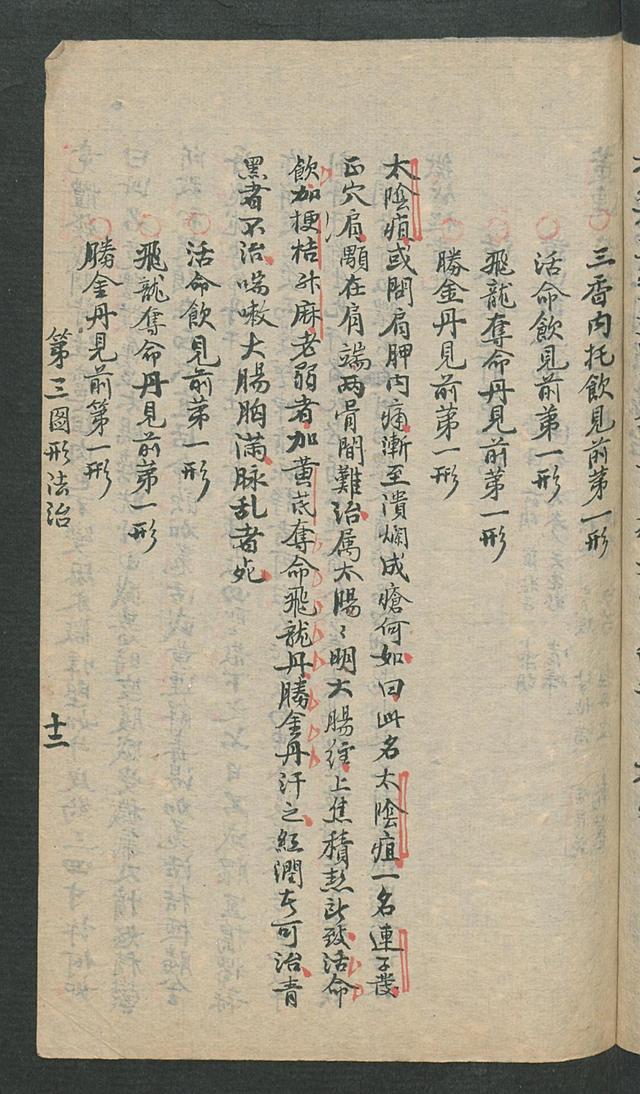 三香內托飲見前苐一形
活命飲見前苐一形
飛龍奪命丹見前苐一形
勝金丹見前苐一形
太陰疽或問肩胛內痛漸至潰爛成瘡何如曰此名太陰疽一名連子發
正穴肩顒在肩端两骨間難治属太腸〻明大腸經上焦積熱所致活命
飲加梗桔升麻老弱者加黄芪奪命飛龍丹勝金丹汗之紅潤者可治青
黑者不治喘嗽大腸胸满脉乱者死
活命飲見前苐一形
飛龍奪命丹見前苐一形
勝金丹見前第一形
第三圖形法治
十二